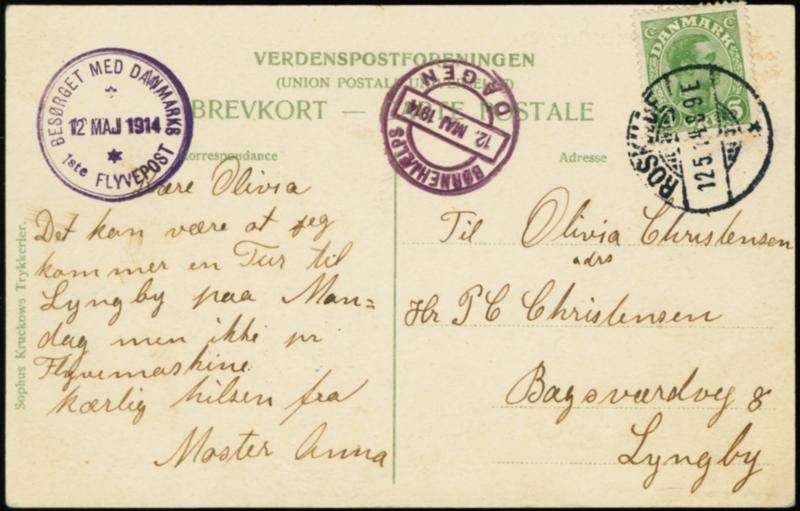 VERDENSPOSTFORENINGEN
(UNION POSTALE UNIVERSELLE)
BREVKORT — CARTE POSTALE
Correspondance
Adresse
DANMARK
5
BESØRGET MED DANMARKS
12 MAJ 1914
1ste FLYVEPOST
BØRNEHJÆLPS
12. MAJ 1914
DAGEN
ROSKILDE
12.5.14. 8-9 E
Kære Olivia
Det kan være at jeg
kommer en Tur til
Lyngby paa Man=
dag men ikke pr
Flyvemaskine
kærlig hilsen fra
Moster Anna
Til Olivia Christensen
adrs
Hr P C Christensen
Bagsværdvej 8
Lyngby
Sophus Kruckows Trykkerier.